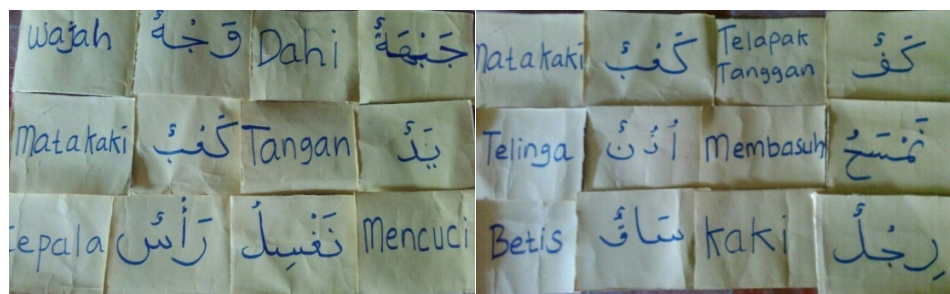 Wajah
وَجْهٌ
Dahi
جَبْهَةٌ
Matakaki
كَعْبٌ
Tangan
يَدٌ
epala
رَأْسٌ
نَغْسِلُ
Mencuci
Matakaki
كَعْبٌ
Telapak
Tanggan
كَفٌ
Telinga
أُذُنٌ
Membasuh
نَمْسَحُ
Betis
سَاقٌ
kaki
رِجْلٌ